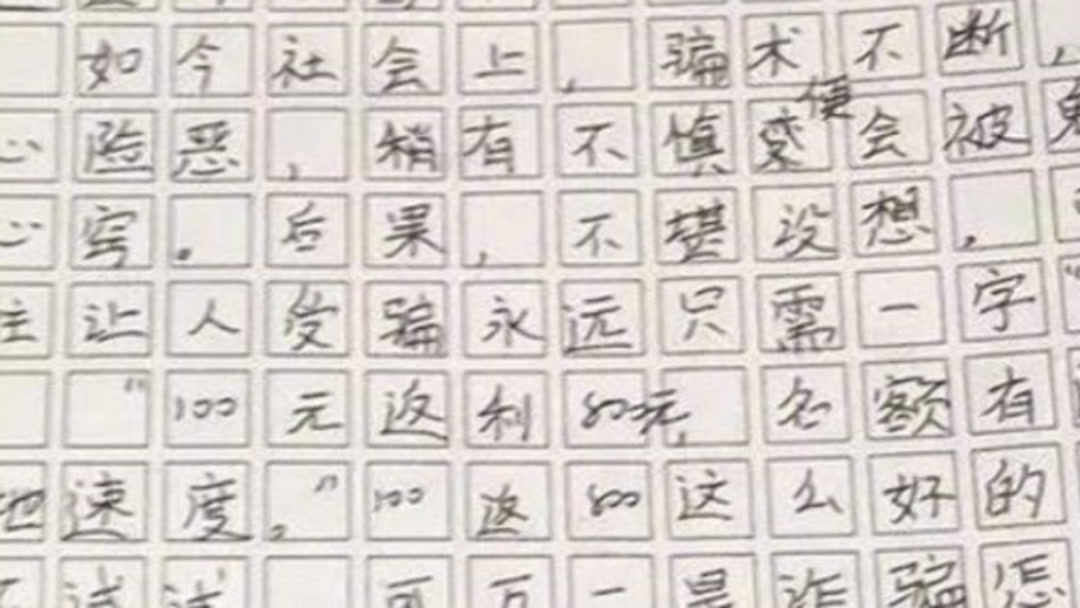 如今社会上，骗术不断，
心险恶，稍有不慎便会被
心窍。后果，不堪设想，
往让人受骗永远只需一字
"100元返利800元，名额有
地速度。"100返800这么好的
试试 可万一是诈骗怎